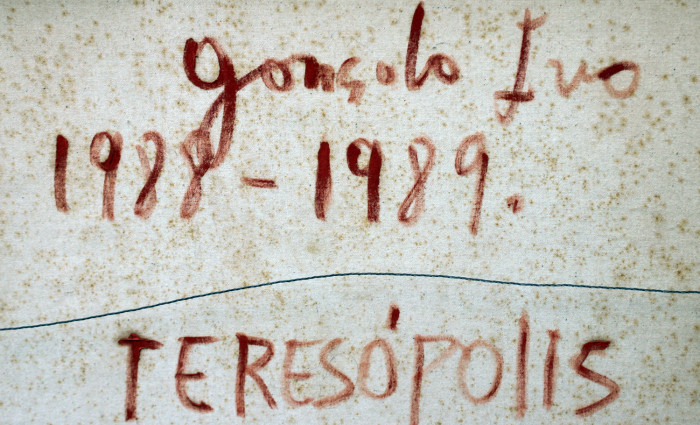 Gonçalo Ivo
1988 - 1989.
TERESÓPOLIS